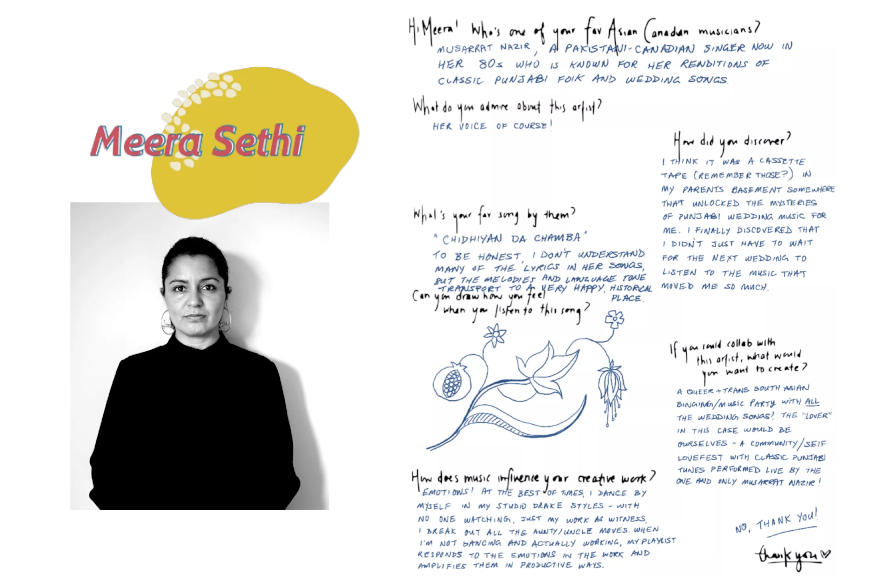 Meera Sethi
Hi Meera! Who's one of your fav Asian Canadian musicians?
MUSARRAT NAZIR, A PAKISTANI-CANADIAN SINGER NOW IN
HER 80s WHO IS KNOWN FOR HER RENDITIONS OF
CLASSIC PUNJABI FOLK AND WEDDING SONGS.
What do you admire about this artist?
HER VOICE OF COURSE!
How did you discover?
I THINK IT WAS A CASSETTE
TAPE (REMEMBER THOSE?) IN
MY PARENTS BASEMENT SOMEWHERE
THAT UNLOCKED THE MYSTERIES
OF PUNJABI WEDDING MUSIC FOR
ME. I FINALLY DISCOVERED THAT
I DIDN'T JUST HAVE TO WAIT
FOR THE NEXT WEDDING TO
LISTEN TO THE MUSIC THAT
MOVED ME SO MUCH.
What's your fav song by them?
"CHIDHIYAN DA CHAMBA"
TO BE HONEST, I DON'T UNDERSTAND
MANY OF THE LYRICS IN HER SONGS,
BUT THE MELODIES AND LANGUAGE TONE
TRANSPORT TO A VERY HAPPY, HISTORICAL
PLACE.
Can you draw how you feel
when you listen to this song?
If you could collab with
this artist, what would
you want to create?
A QUEER + TRANS SOUTH ASIAN
SINGING/MUSIC PARTY WITH ALL
THE WEDDING SONGS! THE "LOVER"
IN THIS CASE WOULD BE
OURSELVES - A COMMUNITY/SELF
LOVEFEST WITH CLASSIC PUNJABI
TUNES PERFORMED LIVE BY THE
ONE AND ONLY MUSARRAT NAZIR!
How does music influence your creative work?
EMOTIONS! AT THE BEST OF TIMES, I DANCE BY
MYSELF IN MY STUDIO DRAKE STYLES - WITH
NO ONE WATCHING, JUST MY WORK AS WITNESS,
I BREAK OUT ALL THE AUNTY/UNCLE MOVES. WHEN
I'M NOT DANCING AND ACTUALLY WORKING, MY PLAYLIST
RESPONDS TO THE EMOTIONS IN THE WORK AND
AMPLIFIES THEM IN PRODUCTIVE WAYS.
NO, THANK YOU!
thank you ♡